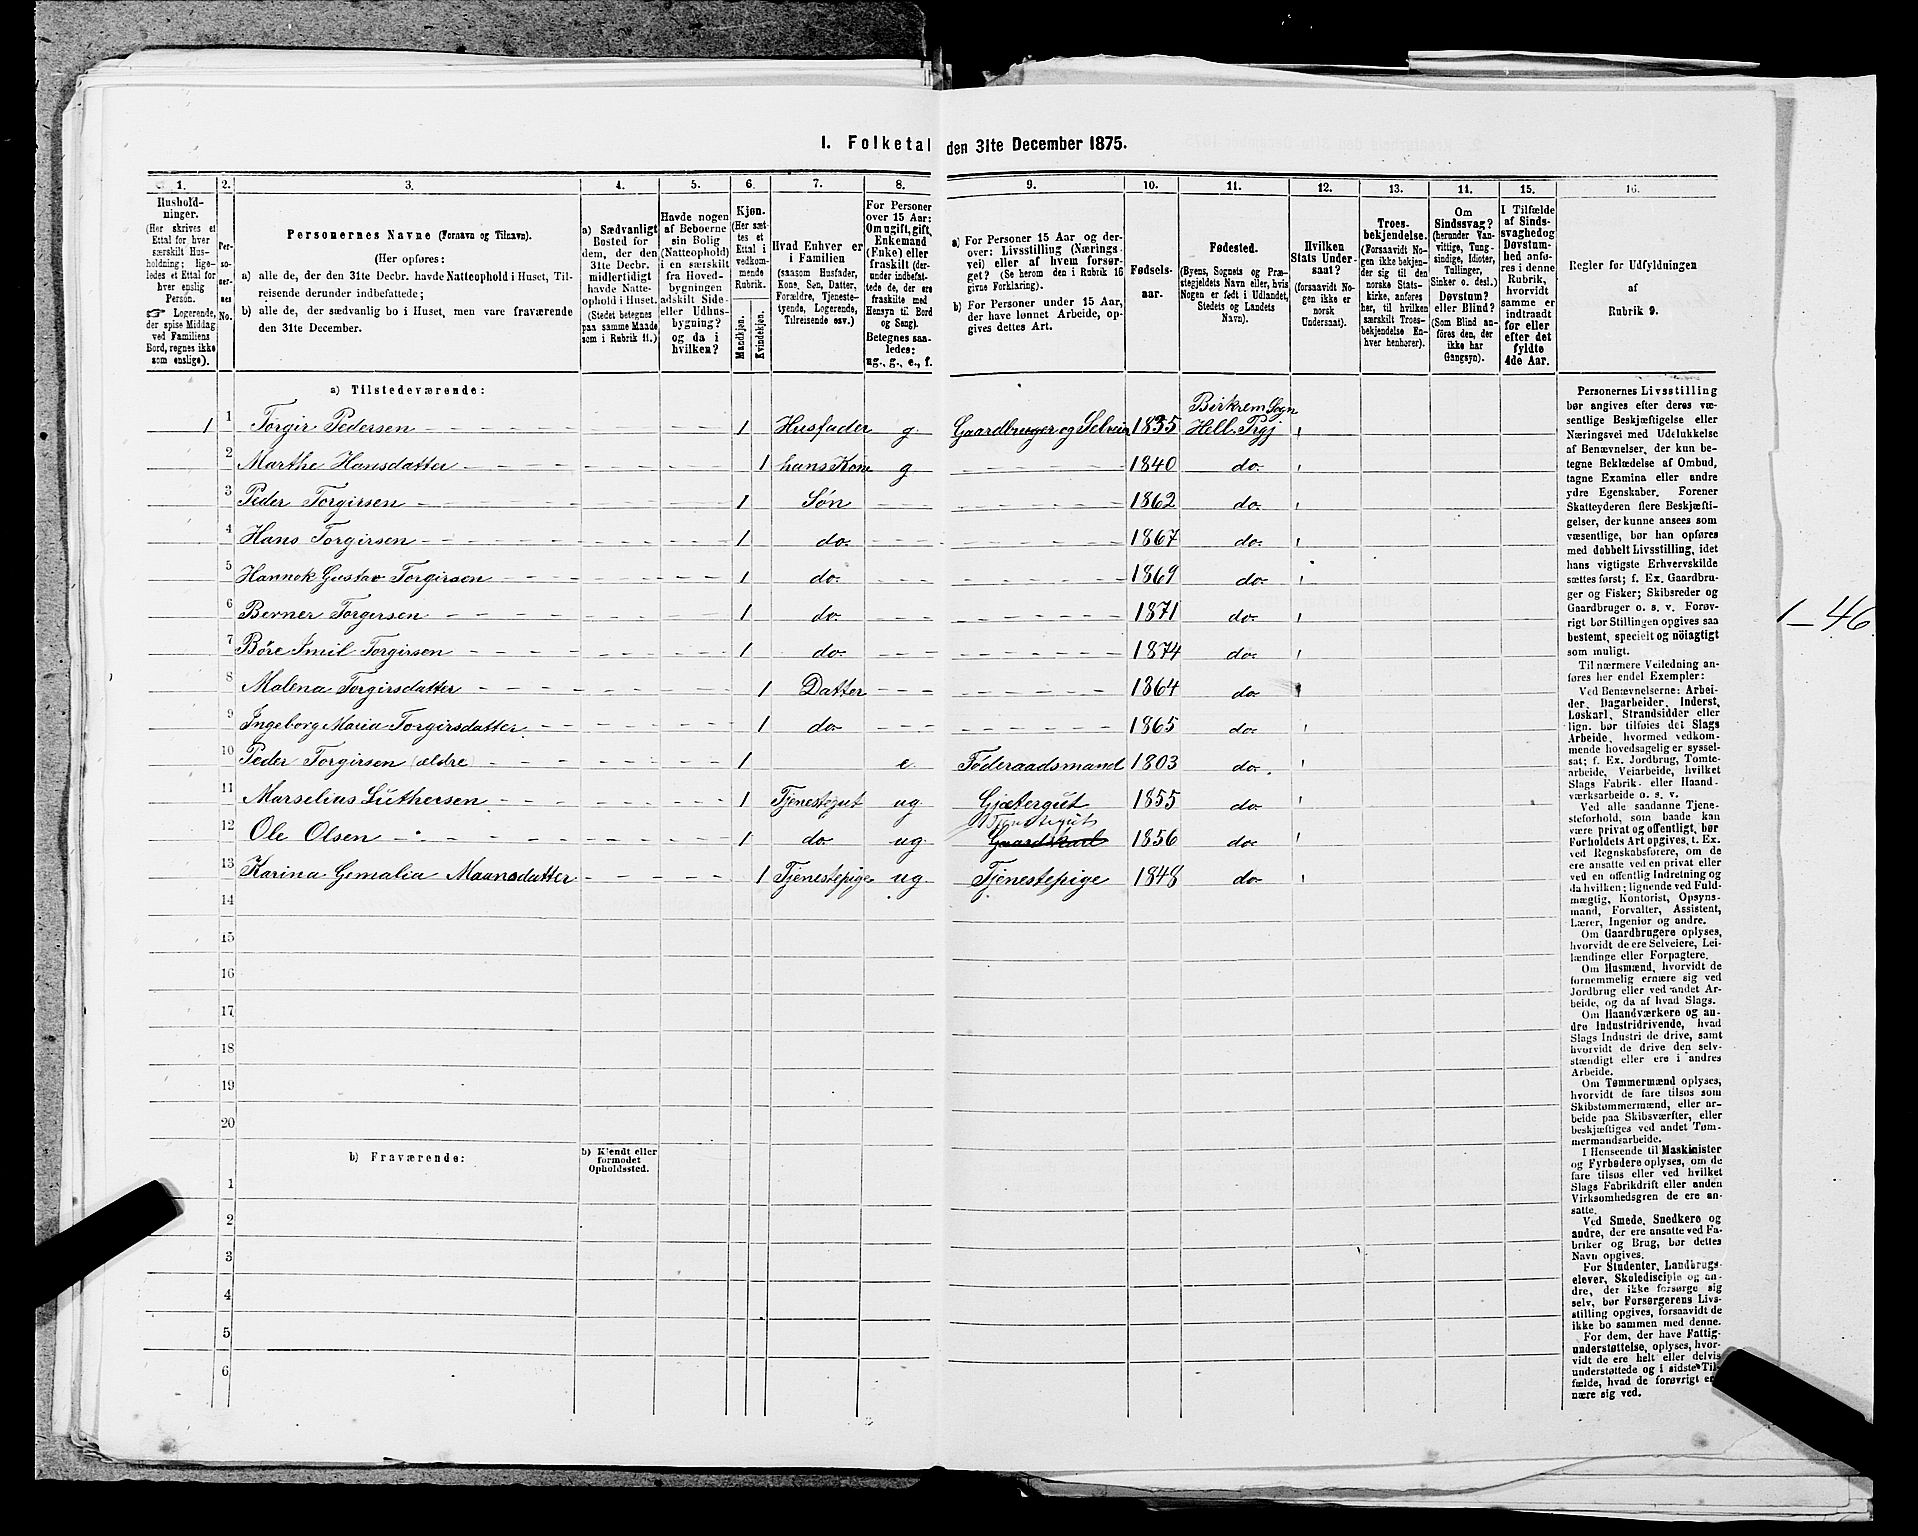 I. Folketal den 31te December 1875.
1. 2. 3. 4. 5. 6. 7. 8. 9. 10. 11. 12. 13. 14. 15. 16.
Hushold-
ninger.
(Her skrives et
Ettal for hver
særskilt Hus-
holdning; lige-
ledes et Ettal for
hver enslig
Person.
☞ Logerende,
der spise Middag
ved Familiens
Bord, regnes ikke
som enslige).
Per-
so-
ner-
nes
No.
Personernes Navne (Fornavn og Tilnavn).
(Her opføres:
a) alle de, der den 31te Decbr. havde Natteophold i Huset, Til-
reisende derunder indbefattede;
b) alle de, der sædvanlig bo i Huset, men vare fraværende
den 31te December.
a) Sædvanligt
Bosted for
dem, der den
31te Decbr.
midlertidigt
havde Natte-
ophold i Huset.
(Stedet betegnes
paa samme Maade
som i Rubrik 11.)
Havde nogen
af Beboerne
sin Bolig
(Natteophold)
i en særskilt
fra Hoved-
bygningen
adskilt Side-
eller Udhus-
bygning?
og da i
hvilken?
Kjøn.
(Her sæt-
tes et
Ettal i
vedkom-
mende
Rubrik.
Mandkjøn.
Kvindekjøn.
Hvad Enhver er
i Familien
(saasom Husfader,
Kone, Søn, Datter,
Forældre, Tjeneste-
tyende, Logerende,
Tilreisende osv.)
For Personer
over 15 Aar:
Om ugift, gift,
Enkemand
(Enke) eller
fraskilt (der-
under indbefat-
tede de, der ere
fraskilte med
Hensyn til Bord
og Seng).
Betegnes saa-
ledes:
ug., g., e., f.
a) For Personer 15 Aar og der-
over: Livsstilling (Nærings-
vei) eller af hvem forsør-
get? (Se herom den i Rubrik 16
givne Forklaring).
b) For Personer under 15 Aar,
der have lønnet Arbeide, op-
gives dettes Art.
Fødsels-
aar.
Fødested.
(Byens, Sognets og Præ-
stegjeldets Navn eller, hvis
Nogen er født i Udlandet,
Stedets og Landets
Navn).
Hvilken
Stats Under-
saat?
(forsaavidt No-
gen ikke er
norsk
Undersaat).
Troes-
bekjendelse.
(Forsaavidt No-
gen ikke bekjen-
der sig til den
norske Stats-
kirke, anføres
her, til hvilken
særskilt Troes-
bekjendelse En-
hver henhører).
Om
Sindssvag?
(herunder Van-
vittige, Tung-
sindige, Idioter,
Tullinger,
Sinker o. desl.)
Døvstum?
eller Blind?
(Som Blind an-
føres den, der
ikke har
Gangsyn).
I Tilfælde
af Sinds-
svaghed og
Døvstum-
hed anfø-
res i denne
Rubrik,
hvorvidt
samme er
indtraadt
før eller
efter det
fyldte
4de Aar.
Regler for Udfyldningen
af
Rubrik 9.
a) Tilstedeværende:
Birkrem Sogn
1 1 Torgir Pedersen 1 Husfader g Gaardbruger og Selveier 1835 Hell. Prgj
2 Marthe Hansdatter 1 hans Kone g 1840 do
3 Peder Torgirsen 1 Søn 1862 do
4 Hans Torgirsen 1 do 1867 do
5 Hannok Gustav Torgirsen 1 do 1869 do
6 Berner Torgersen 1 do 1871 do
7 Böre Imil Torgirsen 1 do 1874 do
8 Malena Torgirsdatter 1 Datter 1864 do
9 Ingeborg Maria Torgirsdatter 1 do 1865 do
10 Peder Torgirsen (ældre) 1 e Føderaadsmand 1803 do
11 Marselius Luthersen 1 Tjenestegut ug Gjætergut 1855 do
Tjenestegut
12 Ole Olsen 1 do ug Gaardskarl 1856 do
13 Karina Gemalia Maansdatter 1 Tjenestepige ug Tjenestepige 1848 do
14
15
16
17
18
19
20
b) Fraværende:
b) Kjendt eller
formodet
Opholdssted.
1
2
3
4
5
6
Personernes Livsstilling
bør angives efter deres væ-
sentlige Beskjæftigelse eller
Næringsvei med Udelukkelse
af Benævnelser, der kun be-
tegne Beklædelse af Ombud,
tagne Examina eller andre
ydre Egenskaber. Forener
Skatteyderen flere Beskjæfti-
gelser, der kunne ansees som
væsentlige, bør han opføres
med dobbelt Livsstilling, idet
hans vigtigste Erhvervskilde
sættes først; f. Ex. Gaardbru-
ger og Fisker; Skibsreder og
Gaardbruger o. s. v. Forøv-
rigt bør Stillingen opgives saa
bestemt, specielt og nöiagtigt
som muligt.
Til nærmere Veiledning an-
føres her endel Exempler:
Ved Benævnelserne: Arbei-
der, Dagarbeider, Inderst,
Løskarl, Strandsidder eller
lign. bør tilføies det Slags
Arbeide, hvormed vedkom-
mende hovedsagelig er syssel-
sat; f. Ex. Jordbrug, Tomte-
arbeide, Veiarbeide, hvilket
Slags Fabrik- eller Haand-
værksarbeide o. s. v.
Ved alle saadanne Tjene-
steforhold, som baade kan
være privat og offentligt, bør
Forholdets Art opgives, f. Ex.
ved Regnskabsførere, om de
ere ansatte ved en privat eller
ved en offentlig Indretning og
da hvilken; lignende ved Fuld-
mægtig, Kontorist, Opsyns-
mand, Forvalter, Assistent,
Lærer, Ingeniør og andre.
Om Gaardbrugere oplyses,
hvorvidt de ere Selveiere, Lei-
lændinge eller Forpagtere.
Om Husmænd, hvorvidt de
fornemmelig ernære sig ved
Jordbrug eller ved andet Ar-
beide, og da af hvad Slags.
Om Haandværkere og an-
dre Industridrivende, hvad
Slags Industri de drive, samt
hvorvidt de drive den selv-
stændigt eller ere i andres
Arbeide.
Om Tømmermænd oplyses,
hvorvidt de fare tilsøs som
Skibstømmermænd, eller ar-
beide paa Skibsværfter, eller
beskjæftiges ved andet Tøm-
mermandsarbeide.
I Henseende til Maskinister
og Fyrbødere oplyses, om de
fare tilsøs eller ved hvilket
Slags Fabrikdrift eller anden
Virksomhedsgren de ere an-
satte.
Ved Smede, Snedkere og
andre, der ere ansatte ved Fa-
briker og Brug, bør dettes
Navn opgives.
For Studenter, Landbrugs-
elever, Skoledisciple og an-
dre, der ikke forsørge sig
selv, bør Forsørgerens Livs-
stilling opgives, forsaavidt de
ikke bo sammen med denne.
For dem, der have Fattig-
understøttelse, oplyses, hvor-
vidt de ere helt eller delvis
understøttede og i sidste Til-
fælde, hvad de forøvrigt er-
nære sig ved.
1 – 46.